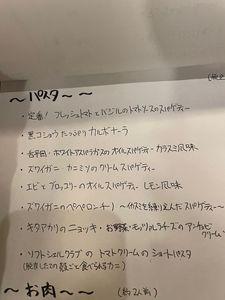 ～パスタ～
・定番！フレッシュトマトとバジルのトマトソースのスパゲティー
・黒コショウたっぷりカルボナーラ
・舌平目・ホワイトアスパラガスのオイルスパゲティー カラスミ風味
・ズワイガニ カニミソのクリームスパゲティー
・エビとブロッコリーのオイルスパゲティー レモン風味
・ズワイガニのペペロンチーノ ～イカスミを練り込んだスパゲティー～
・キタアカリのニョッキ・お野菜・モッツァレラチーズの クリーム
・ソフトシェルクラブの トマトクリームのショートパスタ
(脱皮したての殻ごと食べられるカニ)
～お肉～ (約2人前)